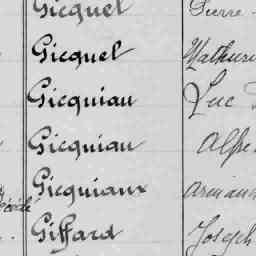 Gicquel Pierre
Gicquel Mathurin
Gicquiau Luc
Gicquiau Alfre
Gicquiaux Armand
décédé
Giffard Joseph